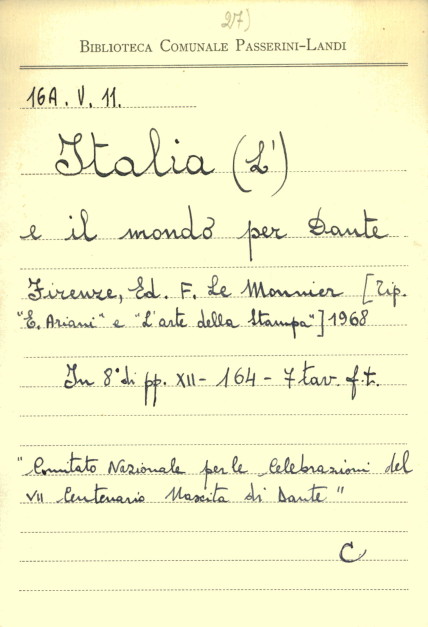 27)
BIBLIOTECA COMUNALE PASSERINI-LANDI
16A. V. 11.
Italia (L')
e il mondo per Dante
Firenze, Ed. F. Le Monnier [Tip.
"E. Ariani" e "L'arte della Stampa"] 1968
In 8° di pp. XII - 164 - 7 tav. f.t.
"Comitato Nazionale per le Celebrazioni del
VII Centenario Nascita di Dante"
C